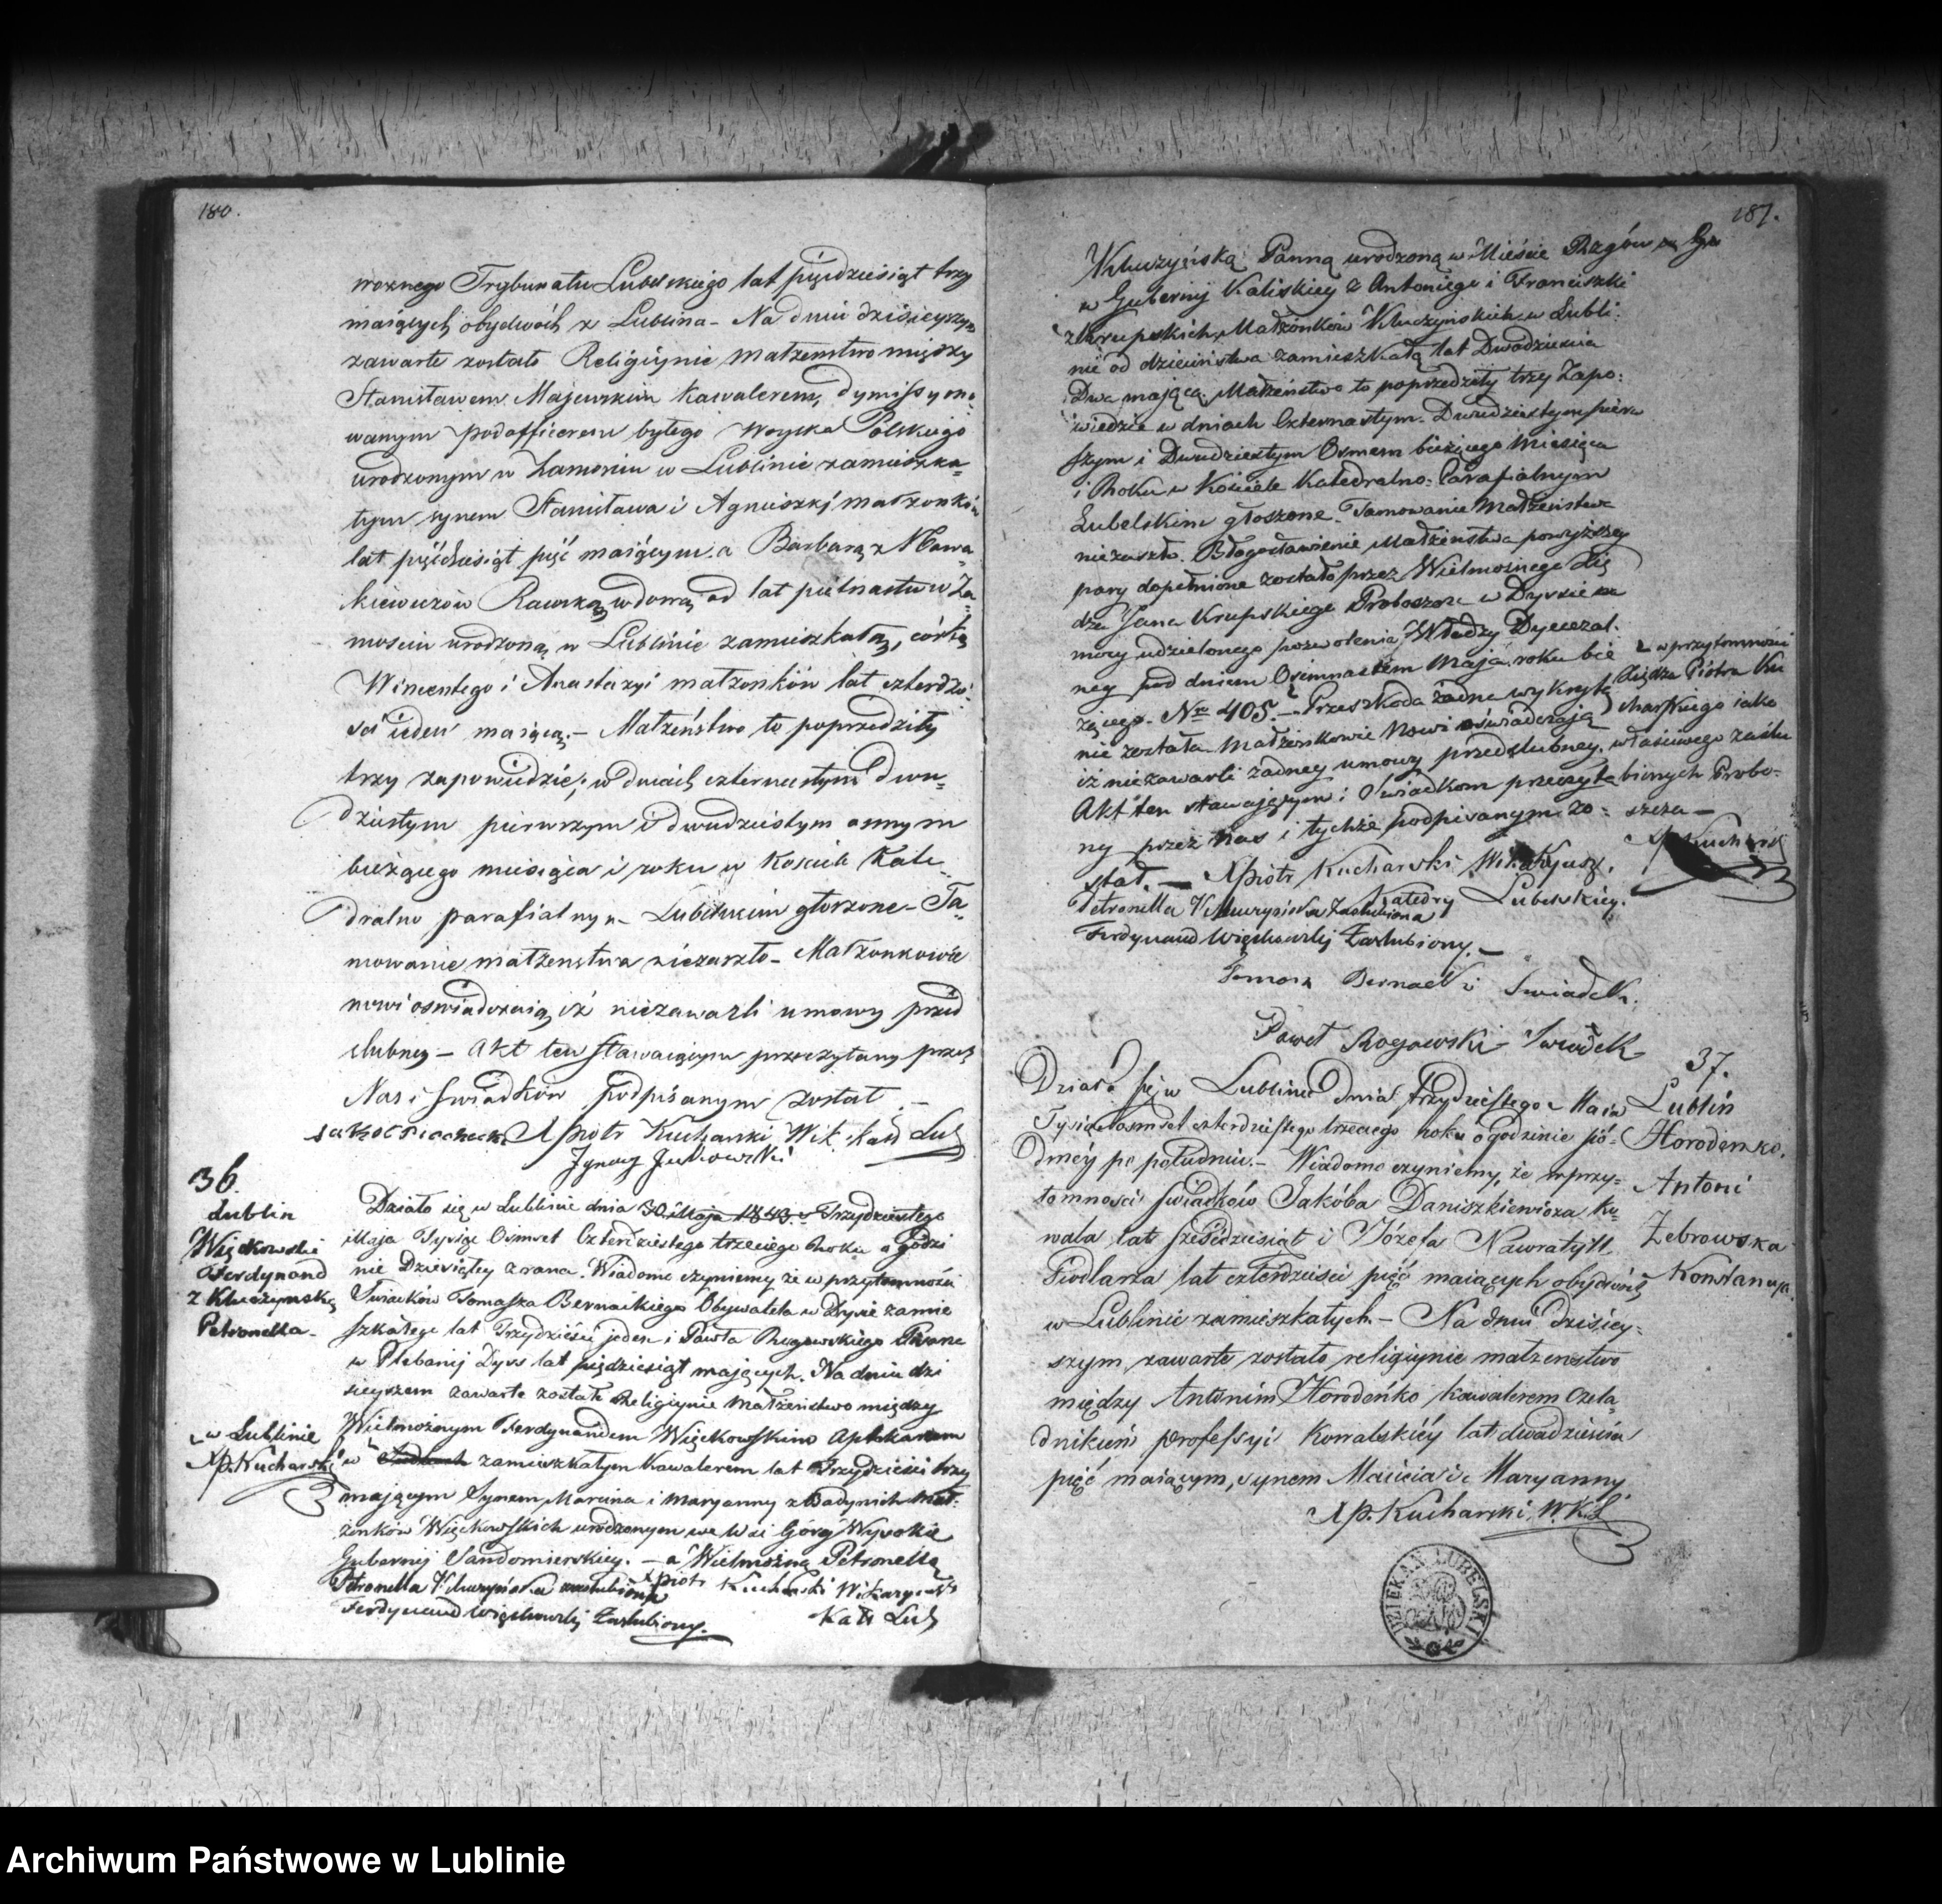 180.
woznego Trybunału Lubelskiego lat pięćdziesiąt trzy
maiących, obydwóch z Lublina - Na dniu dzisieyszym
zawarte zostało Religiynie małżeństwo między
Stanisławem Majewskim Kawalerem, dymissyono,
wanym podofficerem byłego Woyska Polskiego
urodzonym w Zamościu w Lublinie zamieszka=
łym synem Stanisława i Agnieszki małżonków
lat pięćdziesiąt pięć maiącym. a Barbarą z Nowa,
kiewiczów Rawską wdową od lat piętnastu w Za=
mościu urodzoną w Lublinie zamieszkałą, córką
Wincentego i Anastazyi małżonków lat czterdzie
ści ieden maiącą. - Małżeństwo to poprzedziły
trzy zapowiedzie; w dniach czternastym dwu=
dziestym pierwszym i dwudziestym osmym
bieżącego miesiąca i roku w Kosciele Kate,
dralno parafialnym Lubelskim głoszone - Ta,
mowanie małżeństwa niezaszło - Małżonkowie
nowi oswiadczaią iż niezawarli umowy przed
slubney - Akt ten stawaiącym przeczytany przez
Nas i swiadków podpisanym został. -
X Piotr Kucharski Wik: Kated Lub
Ignacy
36.
Lublin
Więckowski
Ferdynand
z Kluczyńską
Petronella -
Działo się w Lublinie dnia 30. Maja 1843. r Trzydziestego
Maja Tysiąc Osmset Czterdziestego trzeciego Roku o godzi
nie Dziewiątey z rana. Wiadomo czyniemy że w przytomności
Swiadków Tomasza Bernackiego Obywatela w Dysie zamie
szkałego lat Trzydzieści jeden i Pawła Rogowskiego
w Plebanij Dyss lat pięćdziesiąt mających. Na dniu dzi
sieyszem zawarte zostało Religiynie Małżeństwo między
Wielmożnym Ferdynandem Więckowskim Aptekarzem
w Lublinie
Xp. Kucharski
w zamieszkałym Kawalerem lat Trzydzieści trzy
mającym Synem Marcina i Maryanny z Badynich Mał:
żonków Więckowskich urodzonym we Wsi Góry Wysokie
Gubernij Sandomierskiey. - a Wielmożną Petronellą
Petronella Kluczyńska zaslubiona X Piotr Kucharski Wikaryusz
Ferdynand Więckowski Zaslubiony. Kat: Lub
187.
Kluczyńską Panną urodzoną w Mieście Rzgów
w Gubernij Kaliskiey z Antoniego i Franciszki
z Krupskich Małżonków Kluczyńskich w Lubli:
nie od dzieciństwa zamieszkałą lat Dwadzieścia
Dwa mającą. Małżeństwo to poprzedziły trzy Zapo:
wiedzie w dniach Czternastym. Dwudziestym pierw
szym i Dwudziestym Osmem bieżącego Miesiąca
i Roku w Kościele Katedralno. Parafialnym
Lubelskim głoszone. Tamowanie Małżeństwa
niezaszło. Błogosławienie Małżeństwa powyższey
pary dopełnione zostało przez Wielmożnego Xię
dza Jana Krupskiego Proboszcza w Dysie
mocy udzielonego pozwolenia Władzy Dyecezal.
ney pod dniem Osiemnastem Maja roku bie
żącego. Nro 405. - Przeszkoda żadna wykryta
nie została Małżonkowie Nowi oświadczają
iż niezawarli żadney umowy przedslubney.
Akt ten stawającym i Świadkom przeczyta
ny przez Nas i tychże podpisanym zo:
stał. - X Piotr Kucharski Wikaryusz
Katedry Lubelskiey.
w przytomności
Xiędza Piotra Ku
charskiego iako
własciwego zaślu
bionych Probo:
szcza -
Xp Kucharski
Petronella Kluczyńska Zaslubiona
Ferdynand Więckowski Zaslubiony. -
Tomasz Bernacki Swiadek.
Paweł Rogowski Swiadek
37.
Lublin
Horodenko.
Antoni
Zebrowska
Konstancya.
Działo się w Lublinie dnia trzydziestego Maia
Tysiąc osmset czterdziestego trzeciego Roku o godzinie siό=
dméy po południu. - Wiadomo czyniemy, że w przy=
tomności swiadków Jakóba Daniszkiewicza Ko=
wala lat sześćdziesiąt i Józefa Nawratyll
Siodlarza lat czterdzieści pięć maiących obydwóch
w Lublinie zamieszkałych. - Na dniu dzisiey=
szym zawarte zostało religiynie małżenstwo
między Antonim Horodeńko kawalerem czela,
dnikiem professyi Kowalskiéy lat dwadzieścia
pięć maiącym, synem Macieia i Maryanny
Xp. Kucharski W.K.L
DZIEKAN LUBELSKI
Archiwum Państwowe w Lublinie